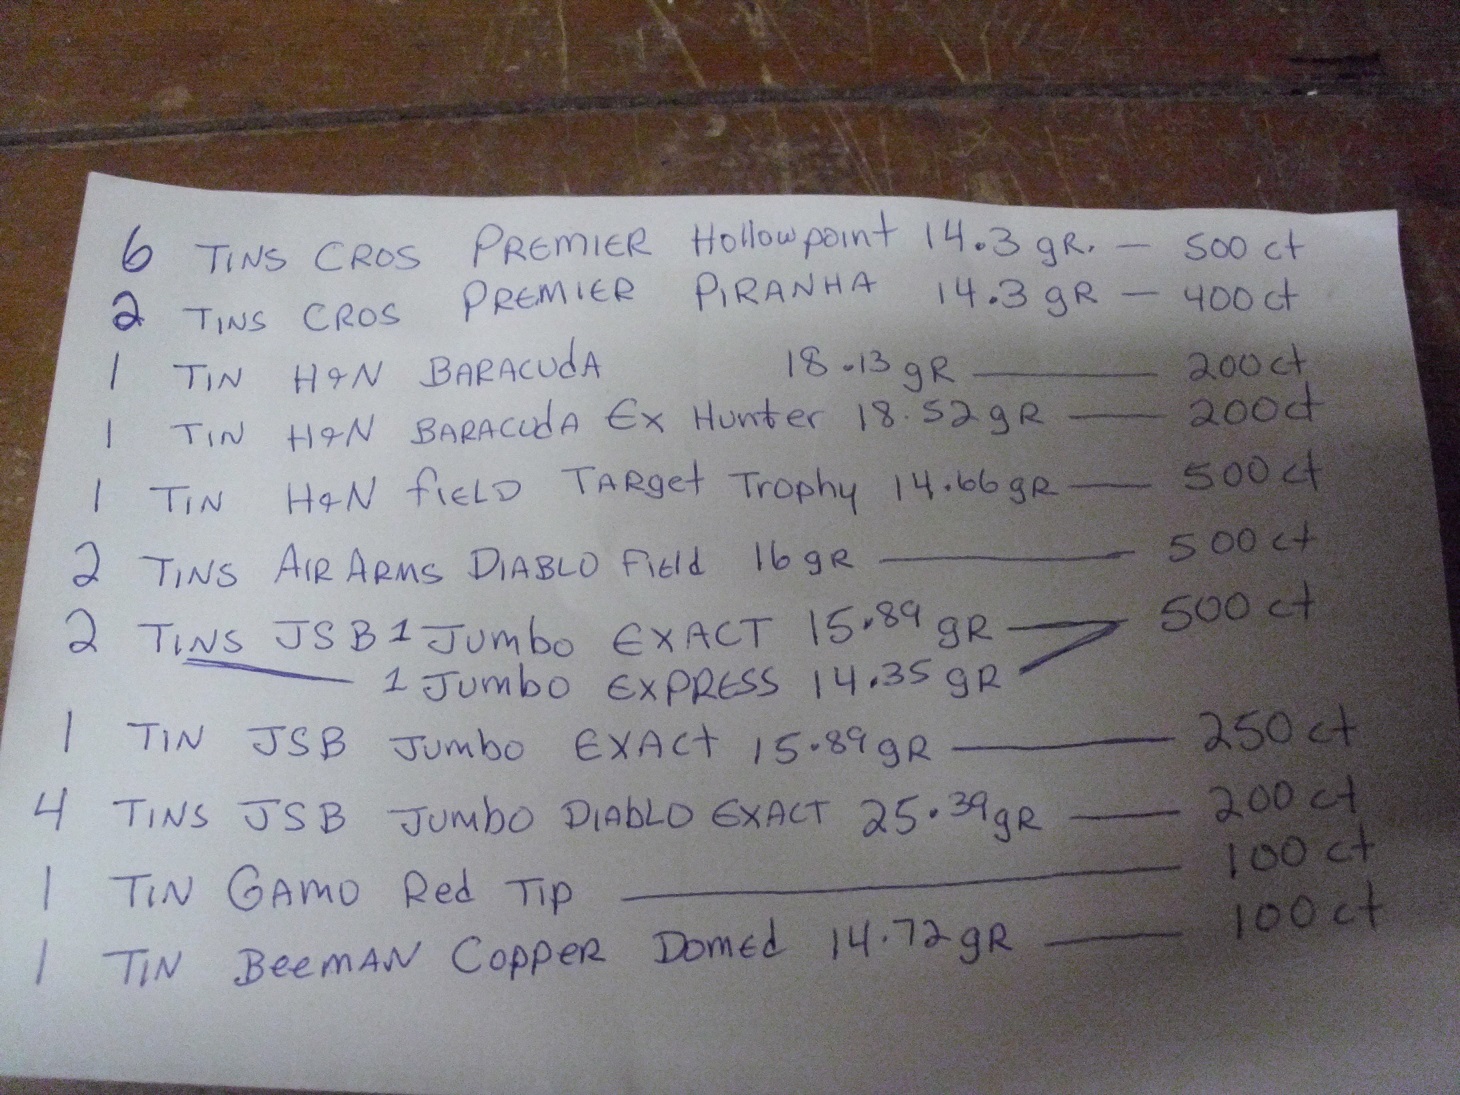 6 TINS CROS PREMIER Hollowpoint 14.3 gR. — 500 ct
2 TINS CROS PREMIER PIRANHA 14.3 gR — 400 ct
1 TIN H&N BARACUdA 18.13 gR — 200 ct
1 TIN H&N BARACUdA Ex Hunter 18.52 gR — 200 ct
1 TIN H&N fIELD TARget Trophy 14.66 gR — 500 ct
2 TINS AIR ARMS DIABLO FIEld 16 gR — 500 ct
2 TINS JSB 1 Jumbo EXACT 15.89 gR — 500 ct
1 Jumbo EXPRESS 14.35 gR
1 TIN JSB Jumbo EXACt 15.89 gR — 250 ct
4 TINS JSB Jumbo DIAbLO EXACT 25.39 gR — 200 ct
1 TIN GAMO Red TIp — 100 ct
1 TIN BeeMAN COPPER DOMEd 14.72 gR — 100 ct